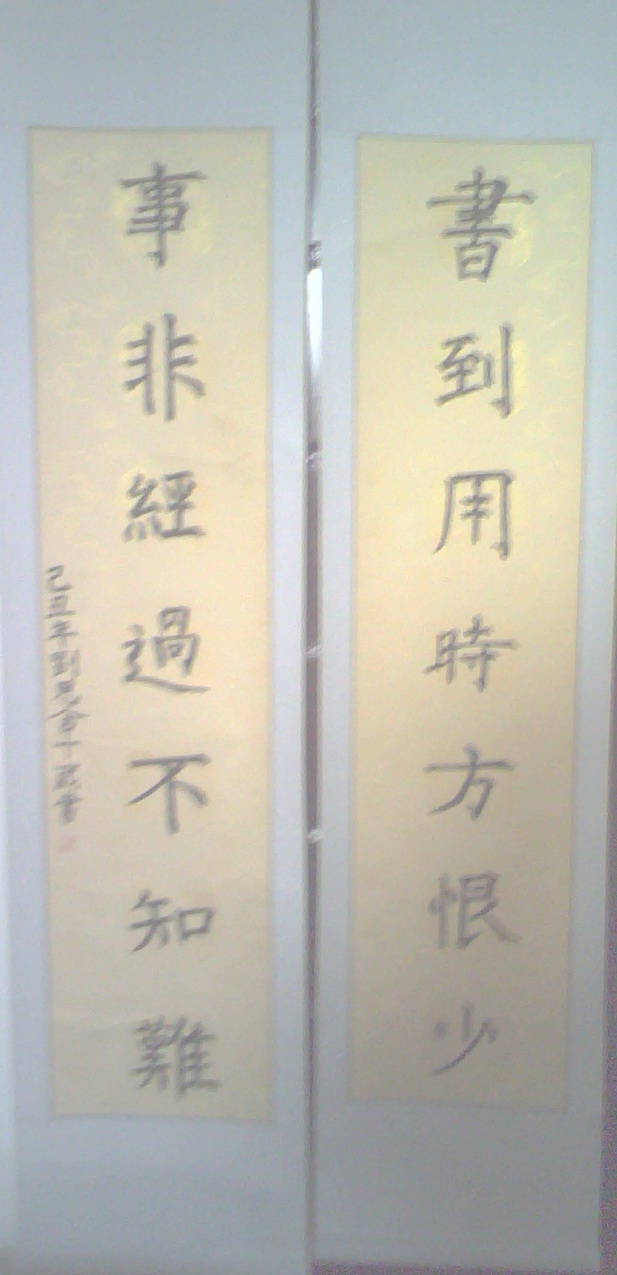 書到用時方恨少
事非經過不知難
己丑年劉